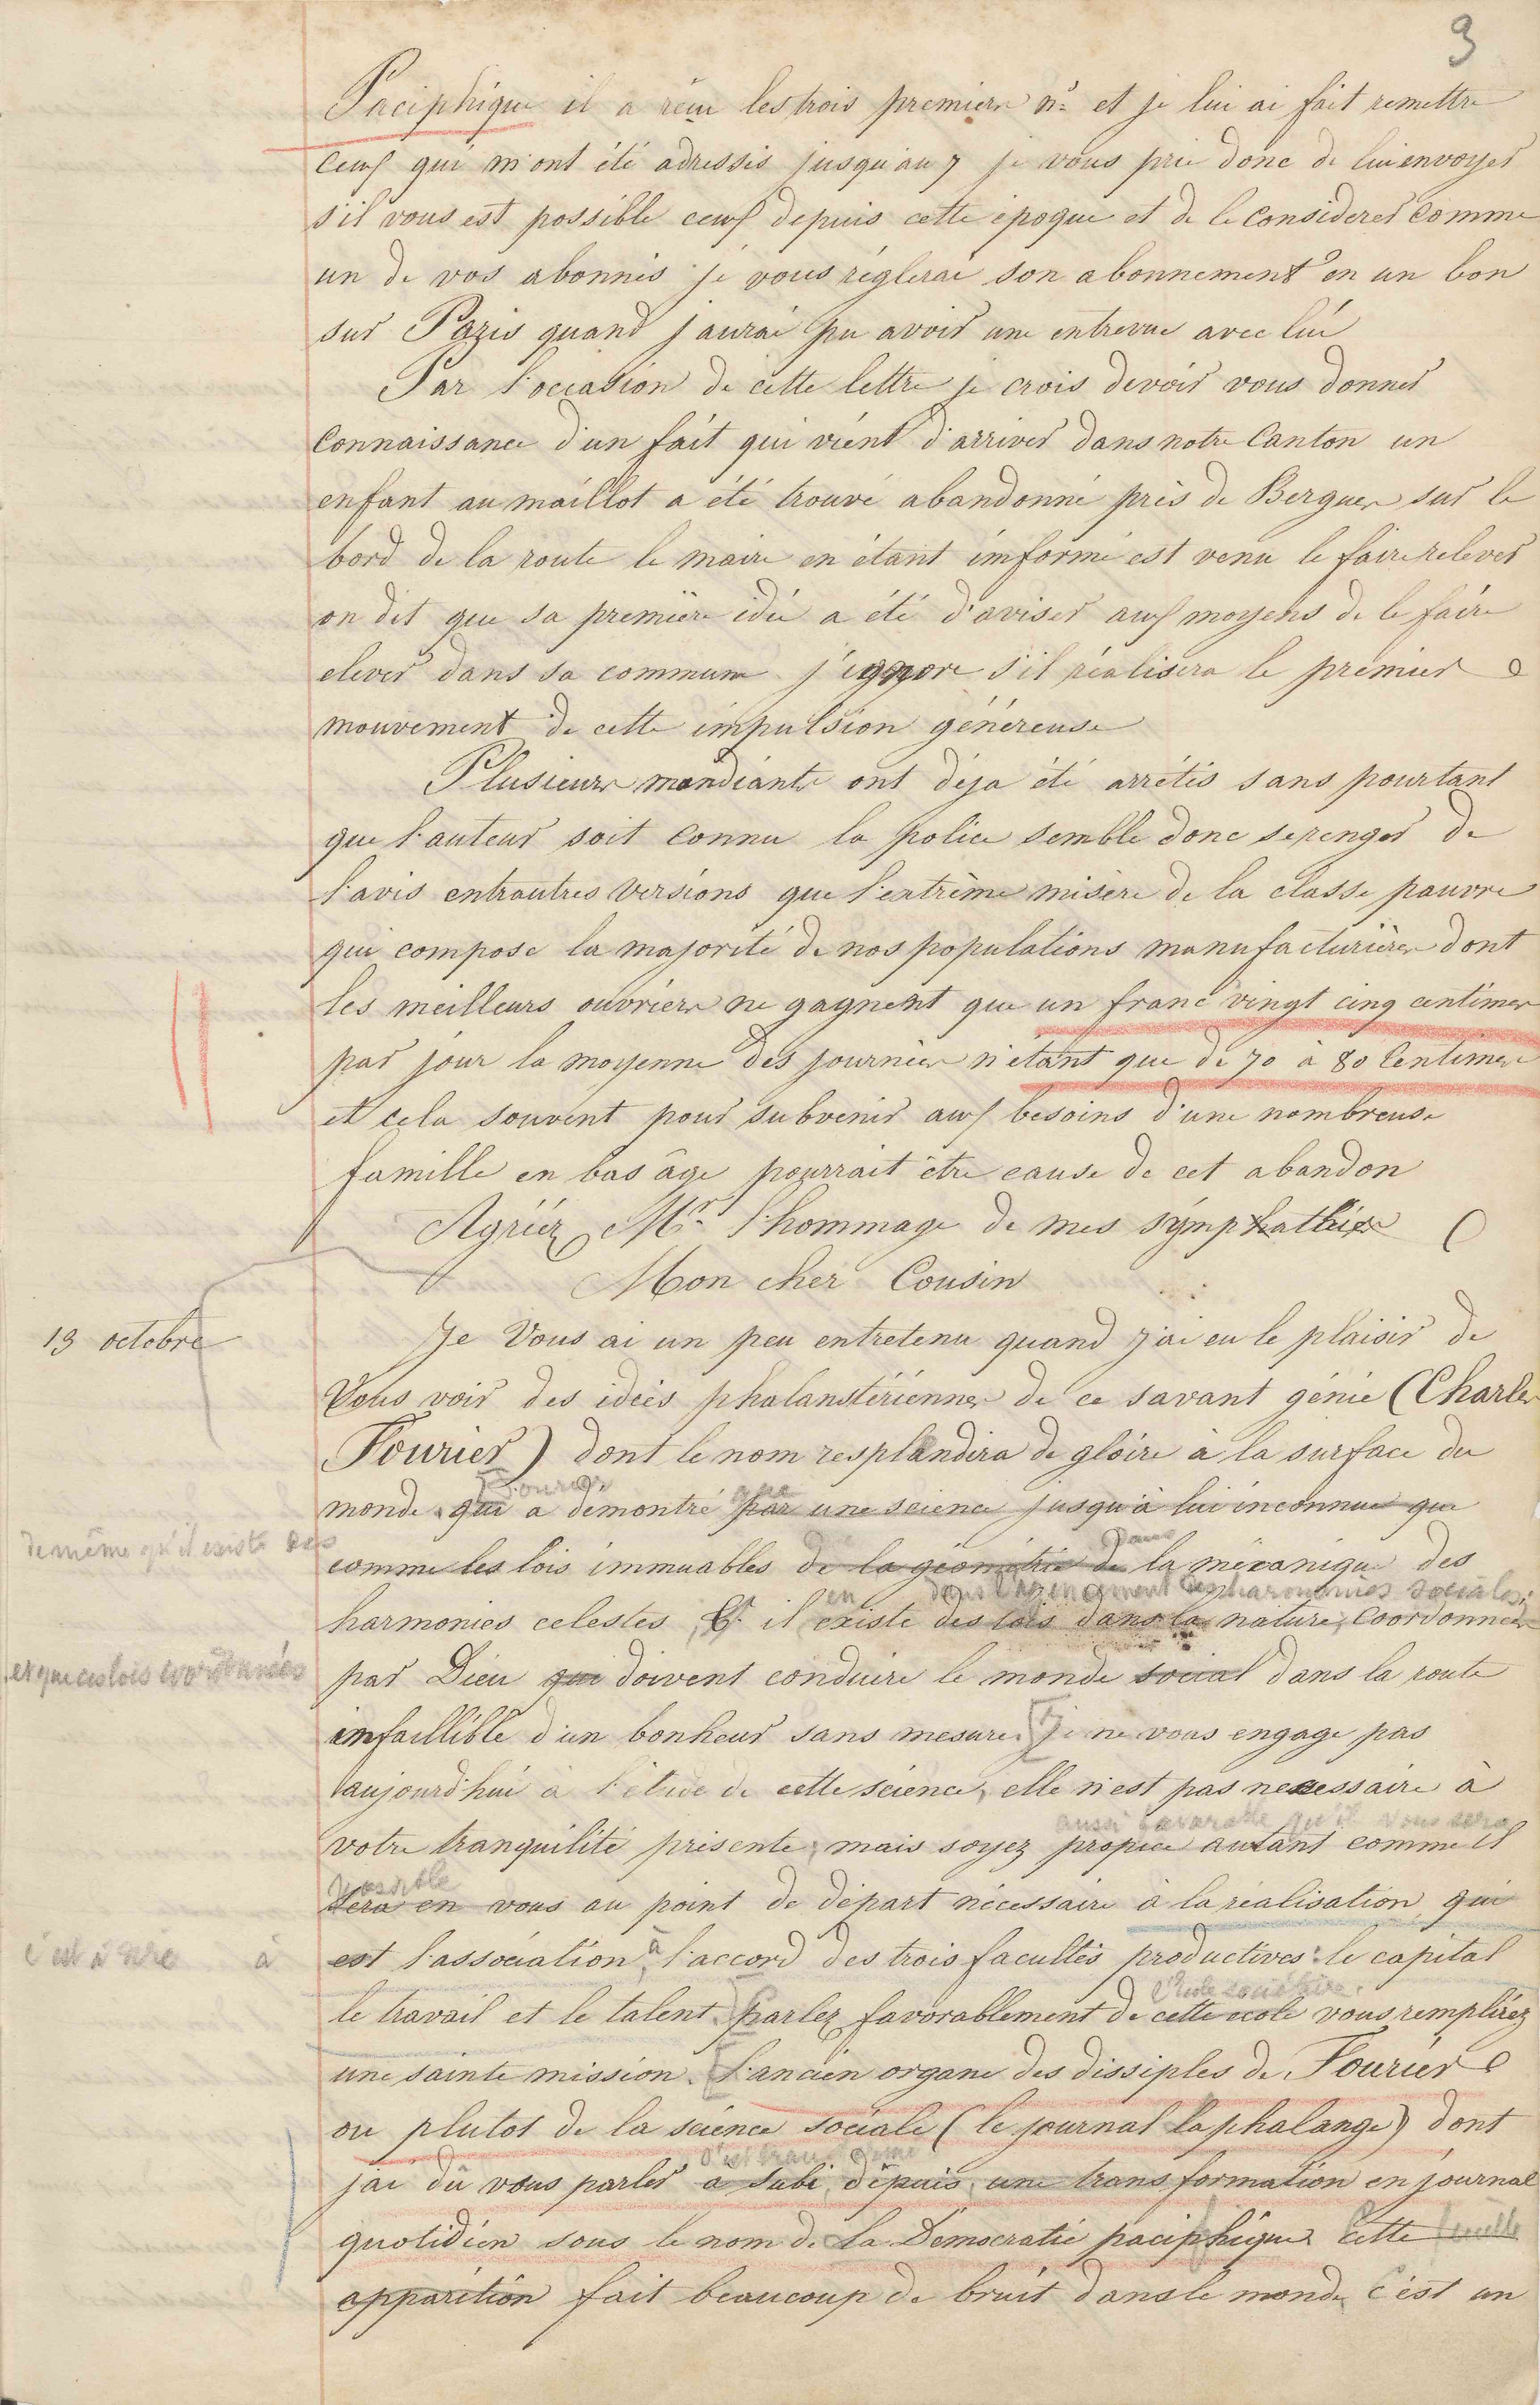 3
Paciphique il a réçu les trois premiers nos et je lui ai fait remettre
ceux qui m'ont été adressés jusqu'au 7 je vous prie donc de lui envoyer
s'il vous est possible ceux depuis cette époque et de le considerer comme
un de vos abonnés je vous réglerai son abonnement en un bon
sur Paris quand j'aurai pu avoir une entrevue avec lui
Par l'occasion de cette lettre je crois devoir vous donner
Connaissance d'un fait qui vient d'arriver dans notre Canton un
enfant au maillot a été trouvé abandonné près de Bergues sur le
bord de la route le maire en étant imformé est venu le faire relever
on dit que sa première idée a été d'aviser aux moyens de le faire
elever dans sa commune j'ignore s'il réalisera le premier
mouvement de cette impulsion généreuse
Plusieurs mandiants ont déja été arrétés sans pourtant
que l'auteur soit connu la police semble donc se renger de
l'avis entrautres versions que l'extrème misère de la classe pauvre
qui compose la majorité de nos populations manufacturières dont
les meilleurs ouvriers ne gagnent que un franc vingt cinq centimes
par jour la moyenne des journées n'étant que de 70 à 80 Centimes
et cela souvent pour subvenir aux besoins d'une nombreuse
famille en bas âge pourrait être cause de cet abandon
Agréez Mr l'hommage de mes sympathies
Mon cher Cousin
13 octobre
Je Vous ai un peu entretenu quand j'ai eu le plaisir de
Vous voir des idées phalanstériennes de ce savant génie (Charles
Fourier) dont le nom resplandira de gloire à la surface du
Fourier que
monde qui a démontré par une science jusqu'à lui inconnue que
de même qu'il existe des
dans
comme les lois immuables de la géométrie de la mécanique des
en dans l'agencement des harmonies sociales;
harmonies celestes, & il existe des lois dans la nature, Coordonnées
et que ces lois coordonnées
par Dieu qui doivent conduire le monde social dans la route
imfaillible d'un bonheur sans mesure. je ne vous engage pas
aujourd'hui à l'étude de cette science, elle n'est pas necessaire à
aussi favorable qu'il vous sera
votre tranquilité présente, mais soyez propice autant comme il
possible
sera en vous au point de départ nécessaire à la réalisation qui
c'est à dire à
est l'association, à l'accord des trois facultés productives: le capital
l'Ecole sociétaire.
le travail et le talent. parlez favorablement de cette ecole vous remplirez
une sainte mission. l'ancien organe des dissiples de Fourier
ou plutot de la science sociale (le journal la phalange) dont
s'est transformé
j'ai dû vous parler a subi depuis une transformation en journal
quotidien sous le nom de la Démocratie paciphique cette feuille
apparition fait beaucoup de bruit dans le monde c'est un